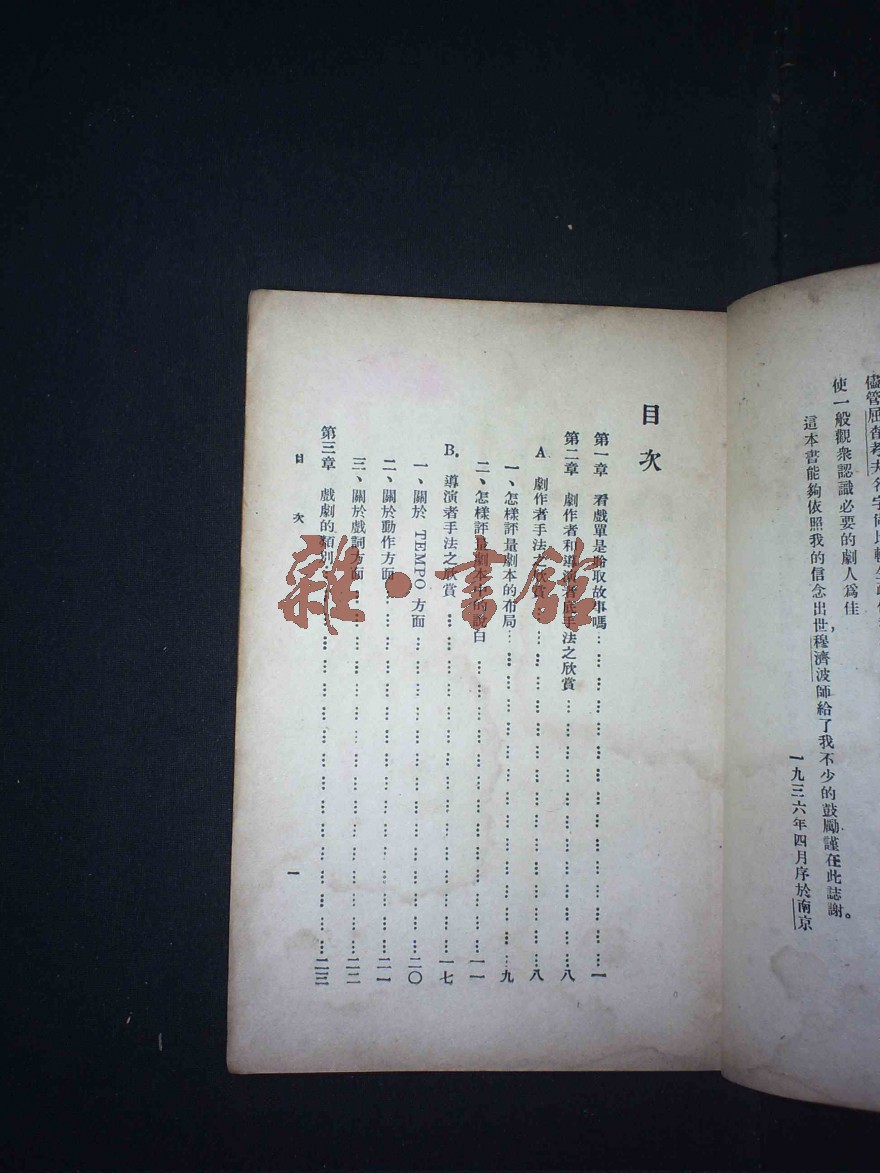 使一般觀衆認識必要的劇人爲佳
這本書能夠依照我的信念出世，穆濟波師給了我不少的鼓勵謹在此誌謝。
一九三六年四月序於南京
目次
第一章 看戲單是聽取故事嗎……一
第二章 劇作者和導演者底手法之欣賞……八
A 劇作者手法之欣賞……八
一、怎樣評量劇本的布局……九
二、怎樣評量劇本中的說白……一一
B. 導演者手法之欣賞……一七
一、關於 TEMPO 方面……二〇
二、關於動作方面……二一
三、關於戲詞方面……二二
第三章 戲劇的類別……二三
目次
一
雜·書館